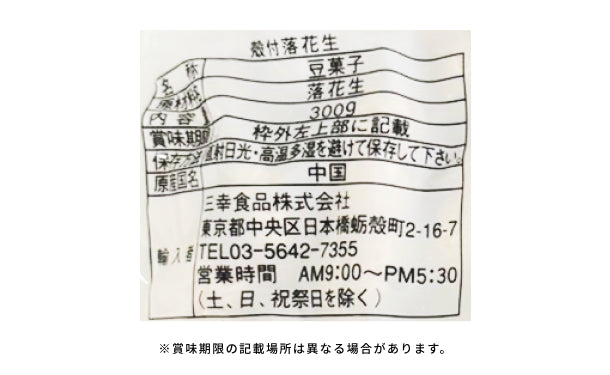 殻付落花生
名称 豆菓子
原材料 落花生
内容 300g
賞味期限 枠外左上部に記載
保存方法 直射日光・高温多湿を避けて保存して下さい。
原産国名 中国
三幸食品株式会社
東京都中央区日本橋蛎殻町2-16-7
輸入者 TEL03-5642-7355
営業時間 AM9:00～PM5:30
(土、日、祝祭日を除く)
※賞味期限の記載場所は異なる場合があります。